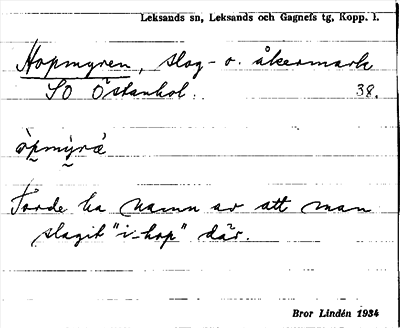 Leksands sn, Leksands och Gagnefs tg, Kopp. l.
Hopmyren, slog- o. åkermark
SO Östanhol. 38.
òpmỳrà
Torde ha namn av att man
slagit "i-hop" där.
Bror Lindén 1934